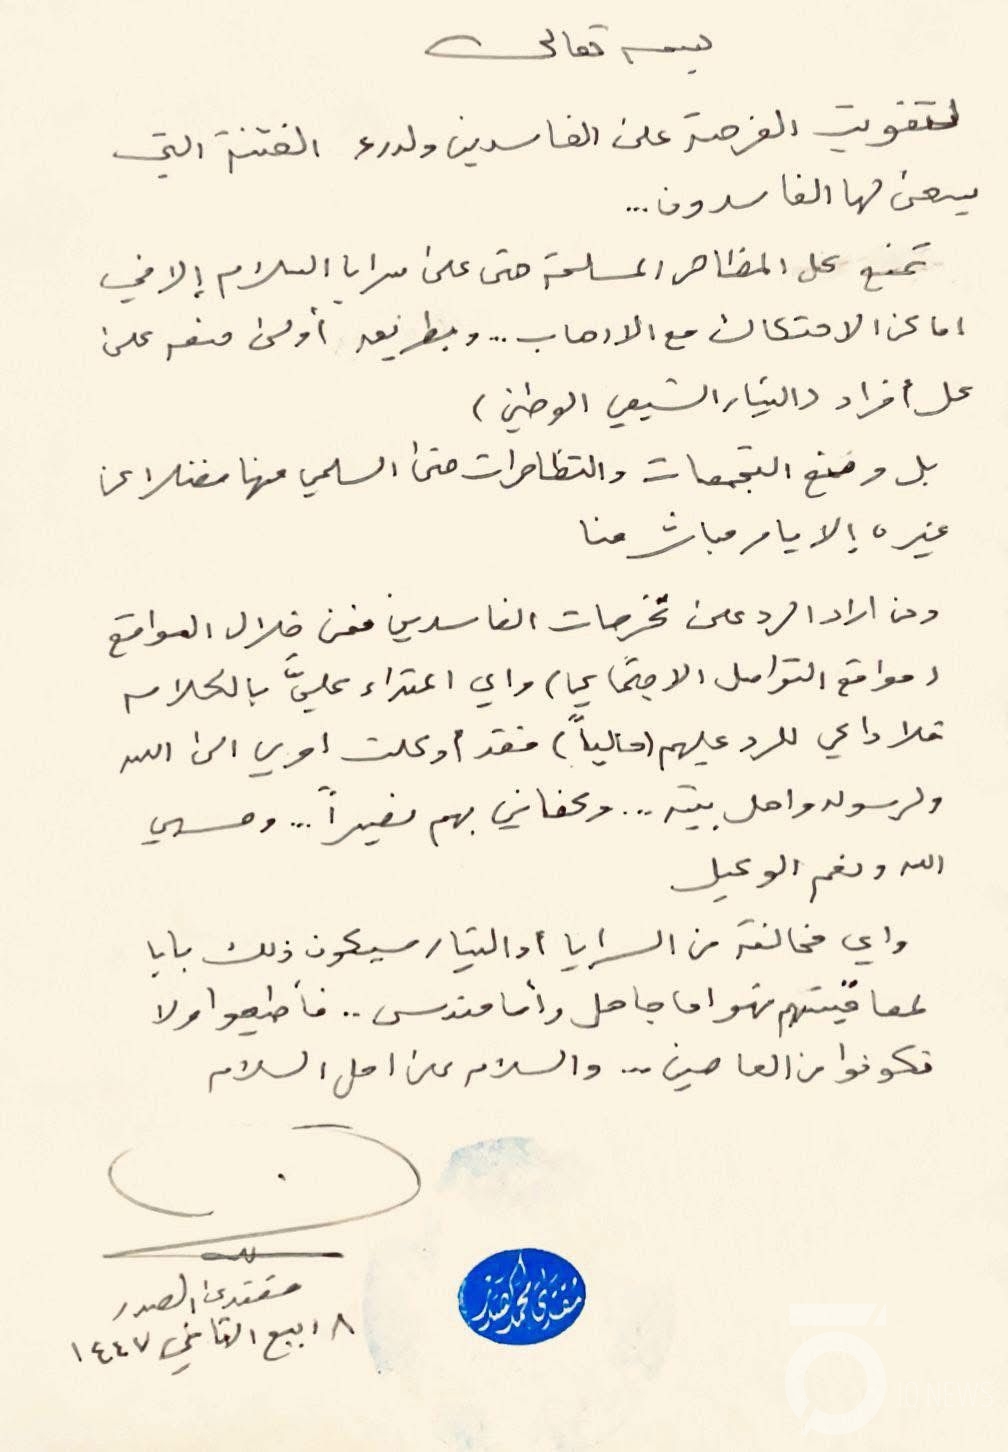 بسمه تعالى
لتفويت الفرصة على الفاسدين ولدرء الفتنة التي
يسعى لها الفاسدون ...
تمنع كل المظاهر المسلحة حتى على سرايا السلام إلا في
اماكن الاحتكاك مع الارهاب ... وبطريق أولى منعه على
كل أفراد (التيار الشيعي الوطني)
بل ومنع التجمعات والتظاهرات حتى السلمي منها فضلا عن
غيره إلا بامر مباشر منا
ومن اراد الرد على تخرصات الفاسدين فمن خلال المواقع
(مواقع التواصل الاجتماعي) واي اعتداء عليَّ بالكلام
فلا داعي للرد عليهم (حالياً) فقد أوكلت امري الى الله
ولرسوله واهل بيته ... وكفاني بهم نصيراً ... وحسبي
الله ونعم الوكيل
واي مخالفة من السرايا أو التيار سيكون ذلك بابا
لمعاقبتهم فهو اما جاهل وأما مندس .. فأطيعوا ولا
تكونوا من العاصين ... والسلام على اهل السلام
مقتدى الصدر
٨ ربيع الثاني ١٤٤٧
مقتدى محمد الصدر